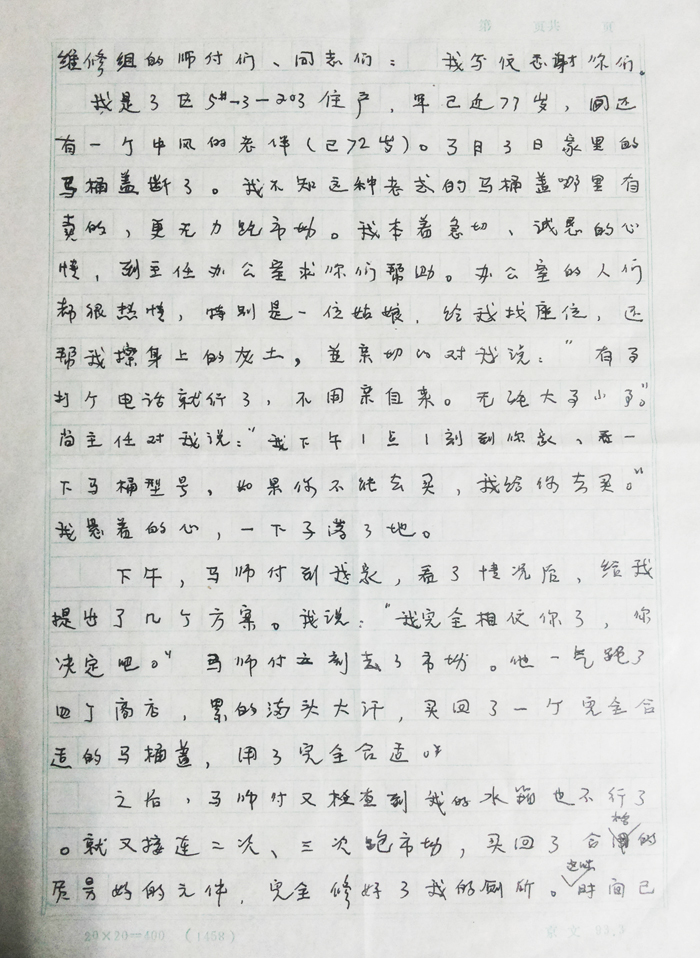 第 页共 页
维修组的师付们、同志们: 我写信感谢你们。
我是3区5#-3-203住户,年已近77岁,间还
有一个中风的老伴(已72岁)。3月3日家里的
马桶盖断了。我不知这种老式的马桶盖哪里有
卖的,更无力跑市场。我本着急切、诚恳的心
情,到主任办公室求你们帮助。办公室的人们
都很热情,特别是一位姑娘,给我找座位,还
帮我擦身上的灰土,并亲切的对我说:"有事
打个电话就行了,不用亲自来。无论大事小事。"
尚主任对我说:"我下午1点1刻到你家,看一
下马桶型号,如果你不能去买,我给你去买。"
我悬着的心,一下子落了地。
下午,马师付到我家,看了情况后,给我
提出了几个方案。我说:"我完全相信你了,你
决定吧。"马师付立刻去了市场。他一气跑了
四个商店,累的满头大汗,买回了一个完全合
适的马桶盖,用了完全合适。
之后,马师付又检查到我的水箱也不行了
。就又接连二次、三次跑市场,买回了合格的
质号好的元件,完全修好了我的厕所。这时时间已
20×20=400 (1458) 京文